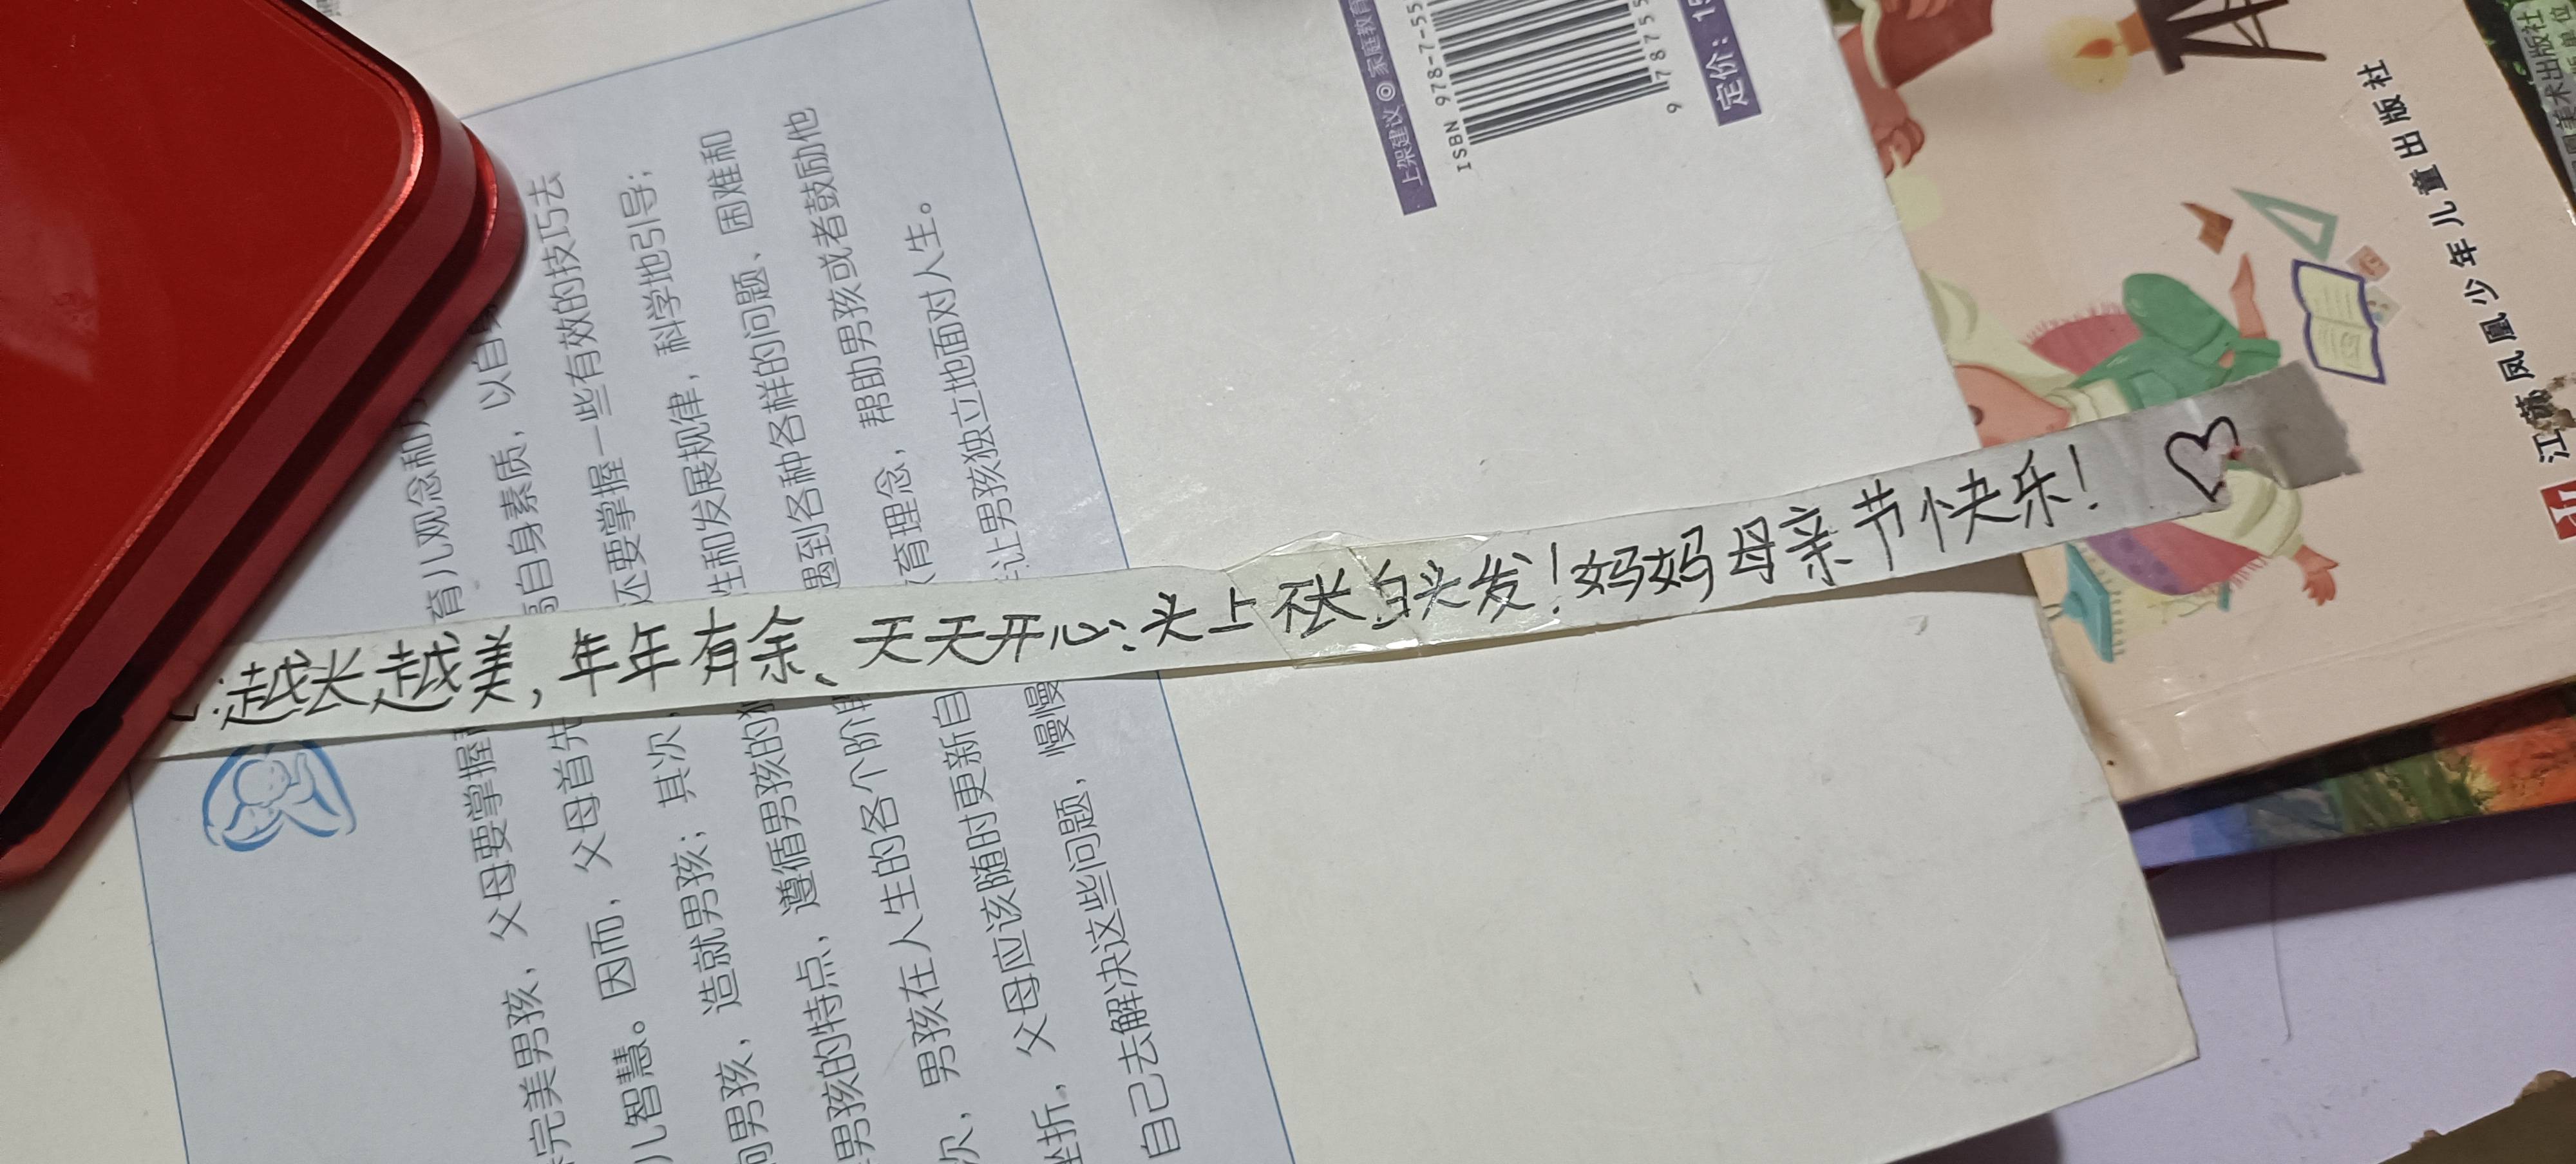 越长越美，年年有余、天天开心、头上不长白头发！妈妈母亲节快乐！
育儿观念和
高自身素质，以自
还要掌握一些有效的技巧去
生和发展规律，科学地引导；
遇到各种各样的问题、困难和
育理念，帮助男孩或者鼓励他
让男孩独立地面对人生。
完美男孩，父母要掌握
儿智慧。因而，父母首先
男孩，造就男孩；其次，
男孩的特点，遵循男孩的
次，男孩在人生的各个阶
挫折，父母应该随时更新自
自己去解决这些问题，慢慢
上架建议◎家庭教育
ISBN 978-7-55
9 78755
定价：
江苏凤凰少年儿童出版社
美术出版社